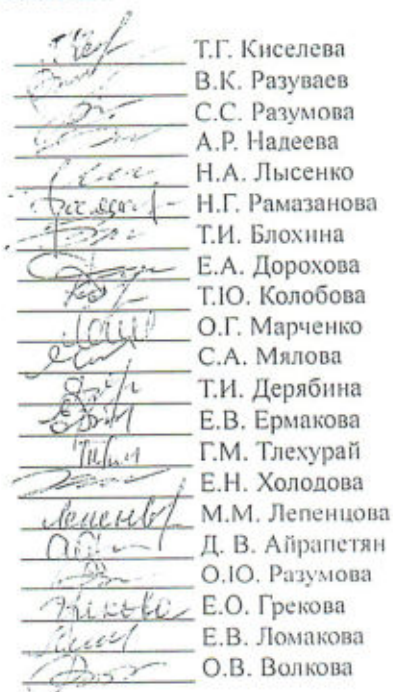 Т.Г. Киселева
В.К. Разуваев
С.С. Разумова
А.Р. Надеева
Н.А. Лысенко
Н.Г. Рамазанова
Т.И. Блохина
Е.А. Дорохова
Т.Ю. Колобова
О.Г. Марченко
С.А. Мялова
Т.И. Дерябина
Е.В. Ермакова
Г.М. Тлехурай
Е.Н. Холодова
М.М. Лепенцова
Д. В. Айрапетян
О.Ю. Разумова
Е.О. Грекова
Е.В. Ломакова
О.В. Волкова